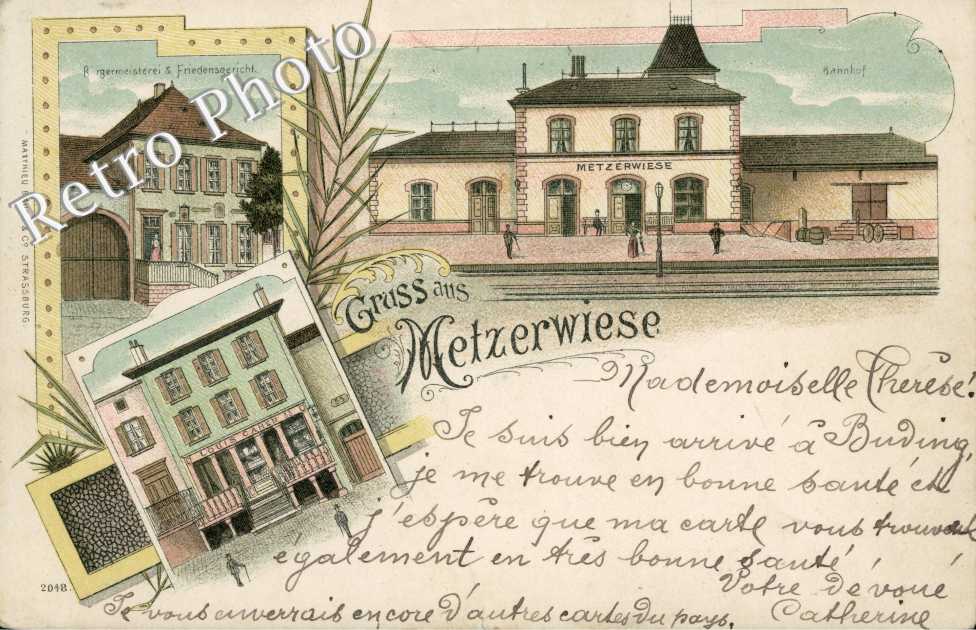 Retro Photo
Burgermeisterei & Friedensgericht.
Bahnhof
METZERWIESE
Gruss aus
Metzerwiese
LOUIS
MATTHIEU & Co STRASSBURG.
Mademoiselle Therèse!
Je suis bien arrivé à Buding,
je me trouve en bonne santé et
j'espère que ma carte vous trouvera
également en très bonne santé!
Votre dévoué
Catherine
Je vous enverrais encore d'autres cartes du pays.
2048.